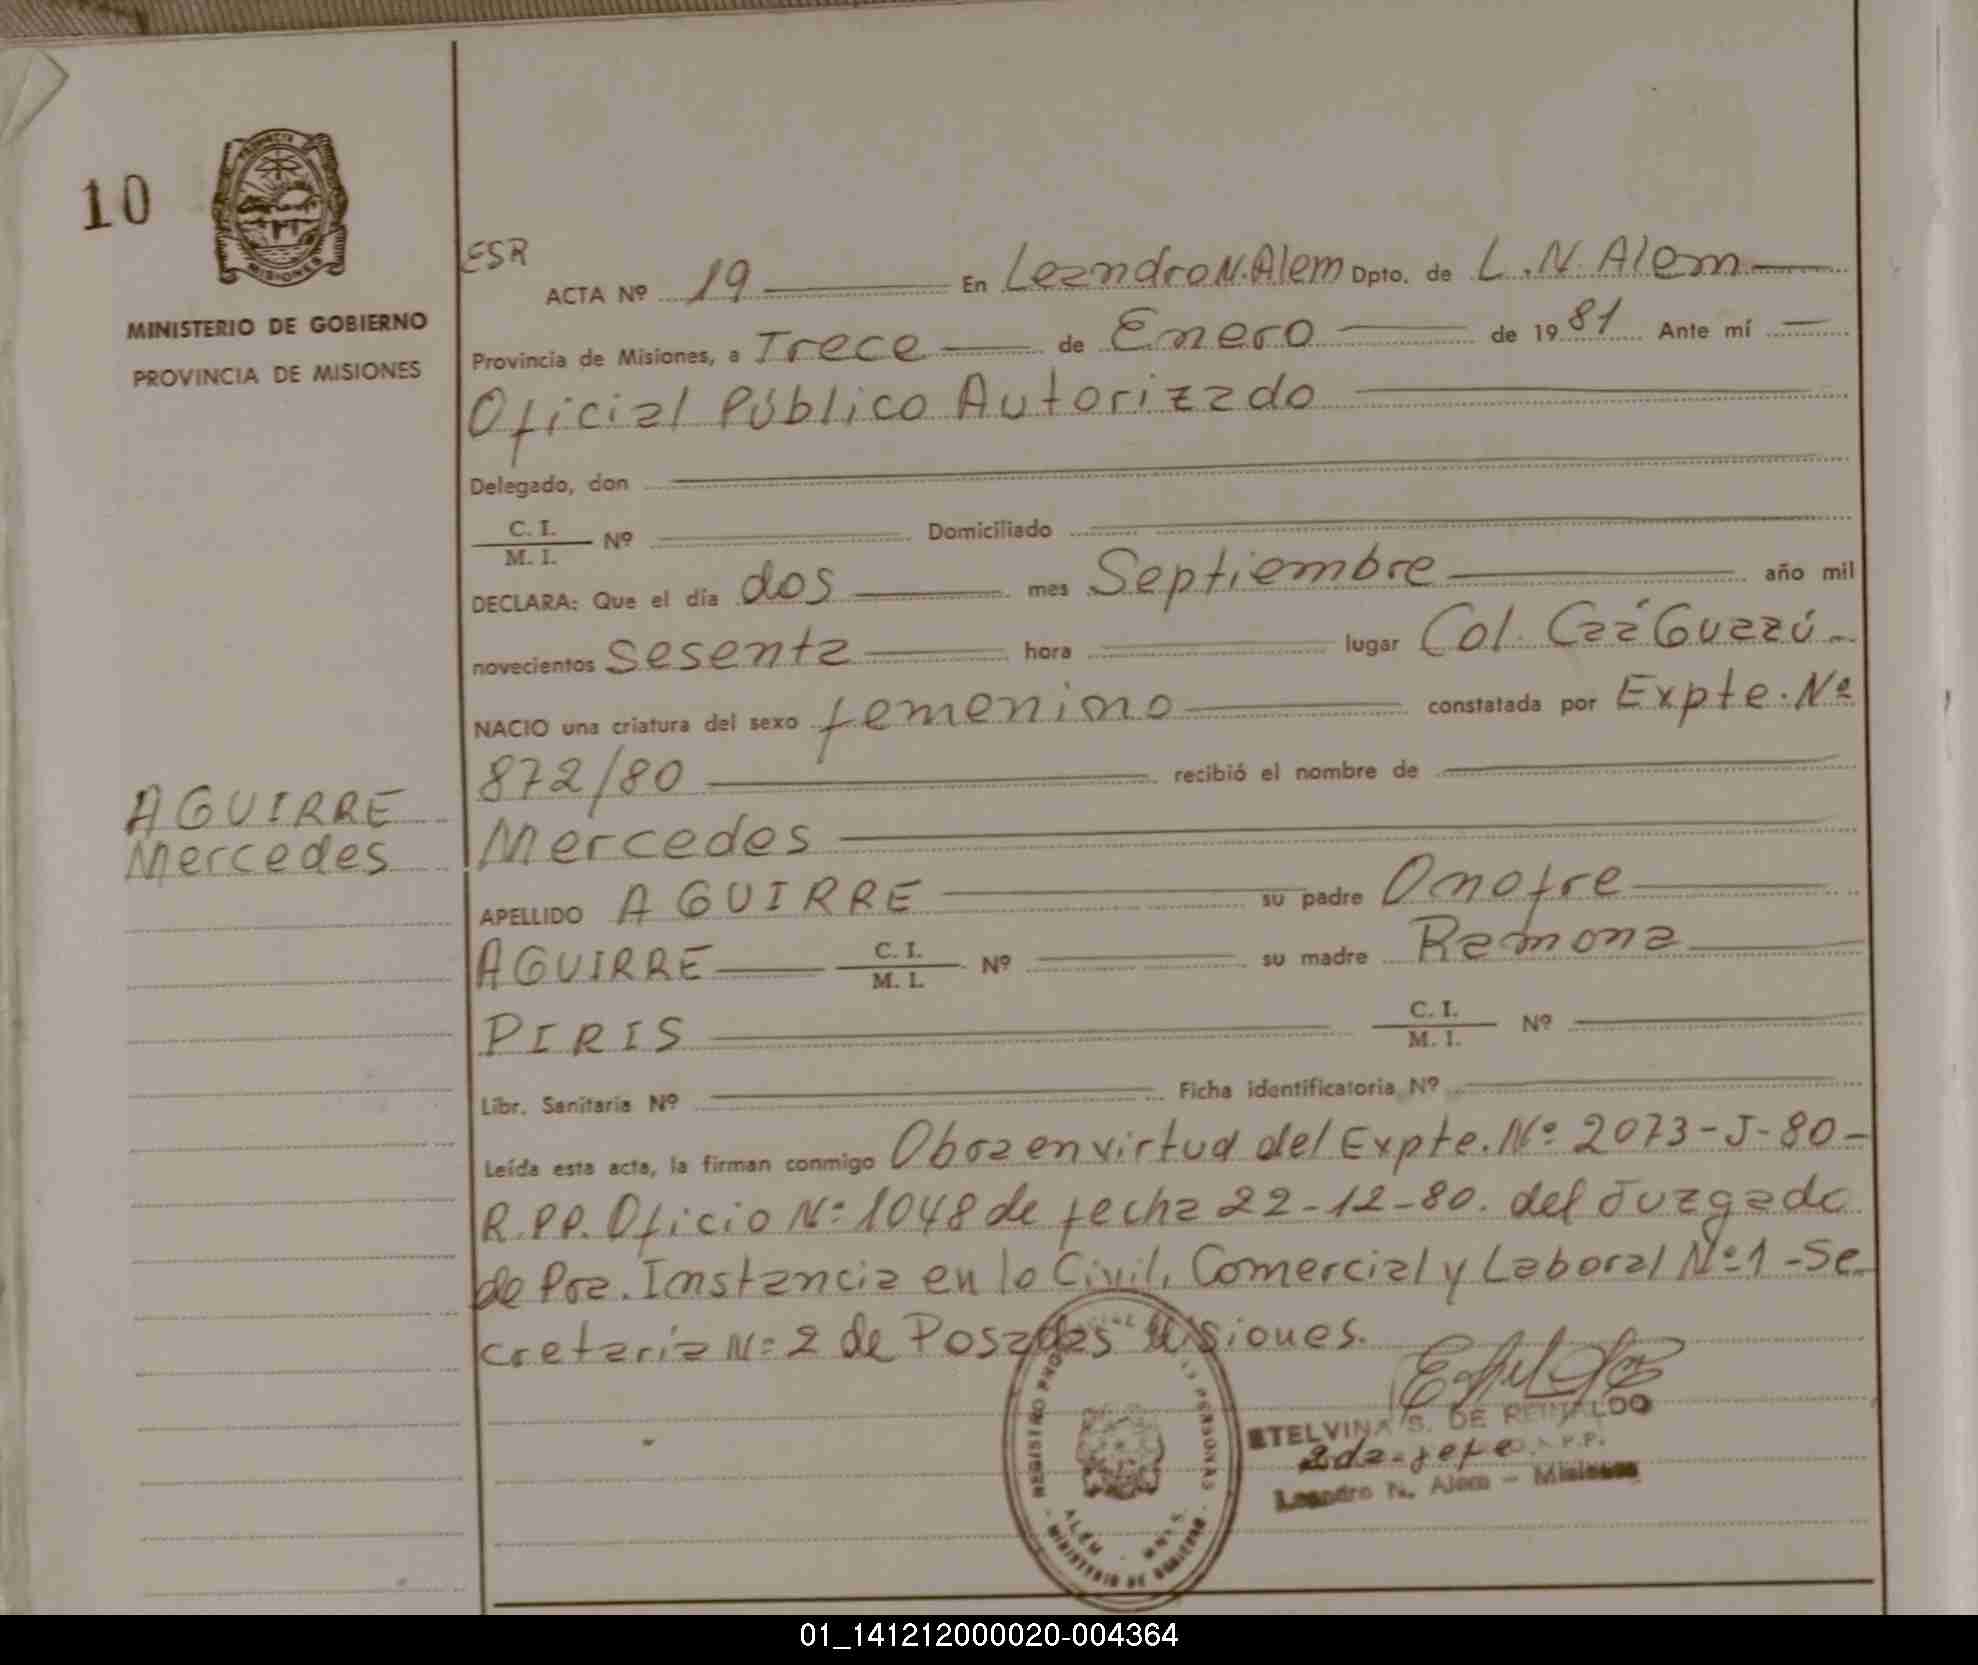 10
PROVINCIA
MISIONES
MINISTERIO DE GOBIERNO
PROVINCIA DE MISIONES
AGUIRRE
Mercedes
ESR
ACTA Nº 19 En Leandro N. Alem Dpto. de L. N. Alem
Provincia de Misiones, a Trece de Enero de 1981 Ante mí
Oficial Público Autorizado
Delegado, don
C. I.
M. I. Nº Domiciliado
DECLARA: Que el día dos mes Septiembre año mil
novecientos sesenta hora lugar Col. Caá Guazú
NACIO una criatura del sexo femenino constatada por Expte. Nº
872/80 recibió el nombre de
Mercedes
APELLIDO AGUIRRE su padre Onofre
AGUIRRE C. I. M. I. Nº su madre Ramona
PIRIS C. I. M. I. Nº
Libr. Sanitaria Nº Ficha identificatoria Nº
Leída esta acta, la firman conmigo Obra en virtud del Expte. Nº 2073-J-80-
R.PP. Oficio Nº 1048 de fecha 22-12-80. del Juzgado
de Pra. Instancia en lo Civil, Comercial y Laboral Nº 1 - Se
cretaría Nº 2 de Posadas Misiones.
ETELVINA S. DE REINALDO
2da. jefe R.P.P.
Leandro N. Alem - Misiones
PERSONAS
ALEM MNES.
MINISTERIO DE GOBIERNO
01_141212000020-004364